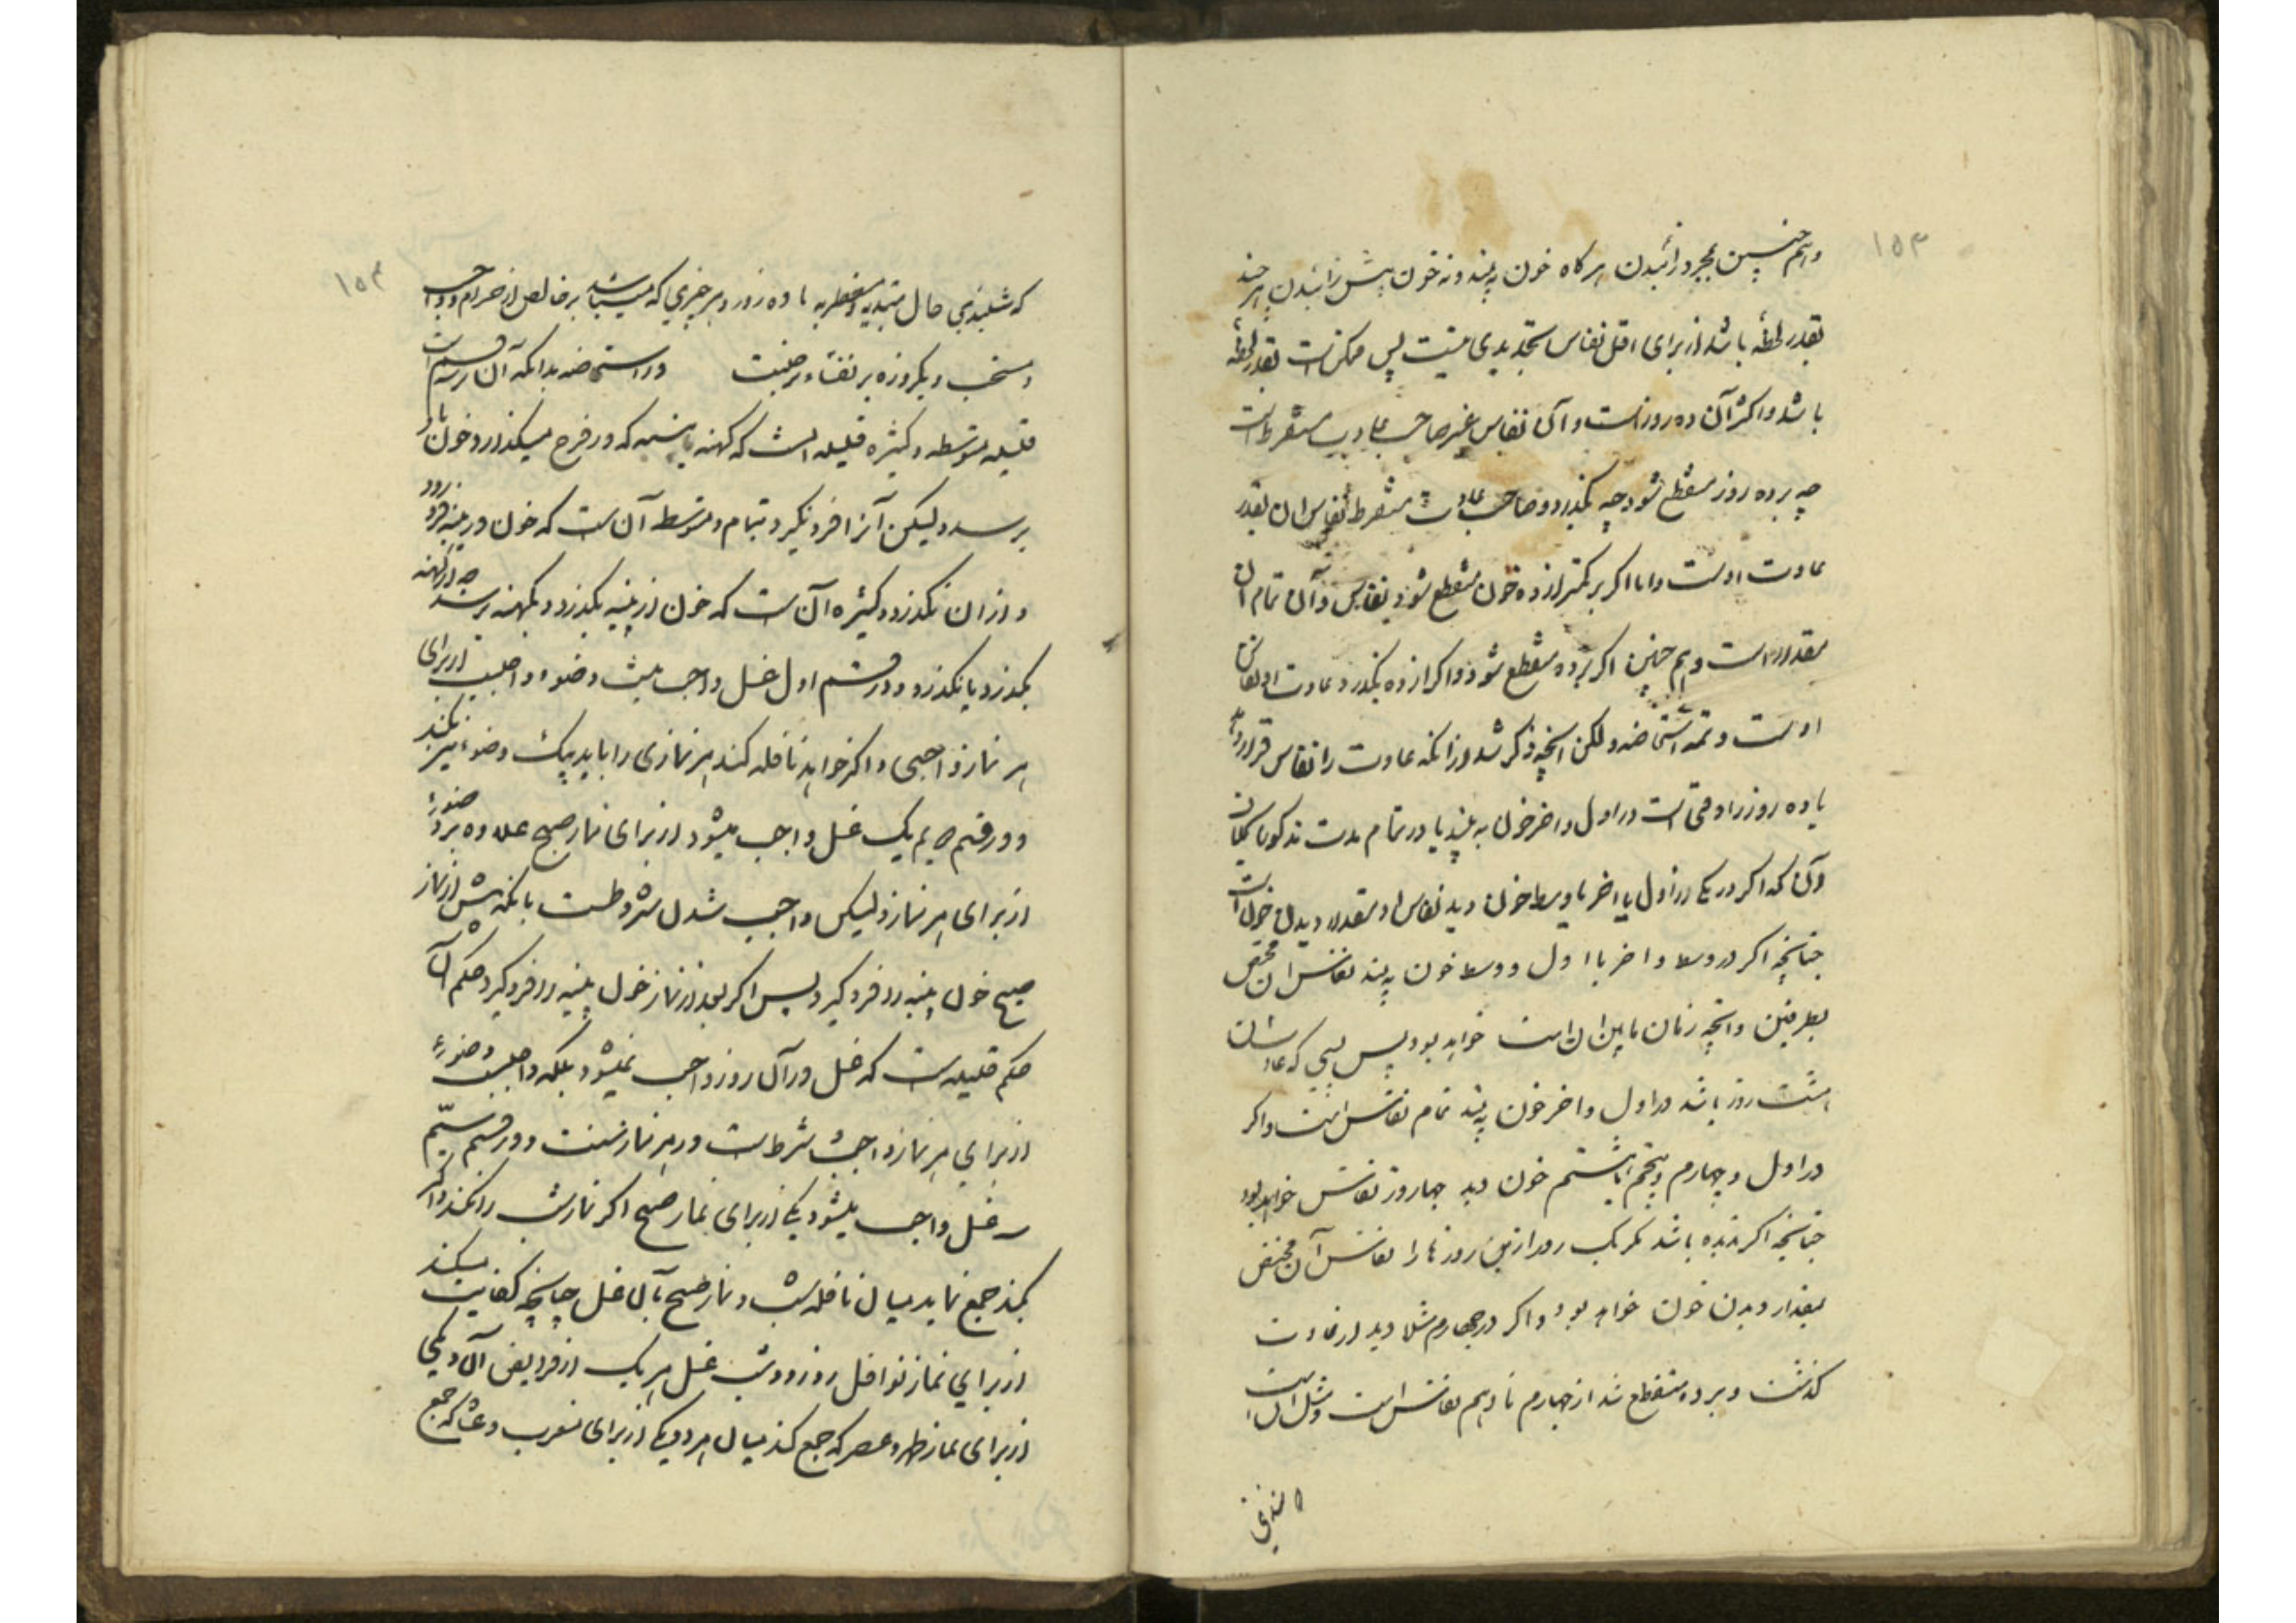 ۱۵۳
و هم چنین بمجرد زائیدن هر گاه خون به بیند و نه خون پیش زائیدن هر چند
بقدر لحظه باشد از برای اقل نفاس تحدیدی نیست پس ممکن است بقدر لحظه
باشد و اکثر آن ده روز است و آن نفاس غیر صاحب عادت مستقره است
چه بر ده روز منقطع شود چه بگذرد و صاحب عادت مستقره نفاس ان بقدر
عادت اوست و اما اگر بر کمتر از ده خون منقطع شود نفاس آن تمام ان
مقدور است و هم چنین اگر بر ده منقطع شود و اگر از ده بگذرد عادت او نفاس
اوست و تتمه استحاضه و لکن انچه ذکر شد از انکه عادت را نفاس قرار دهد
یا ده روز را وقتی است در اول و اخر خون به بیند یا در تمام مدت مذکور
و آن که اگر در یکی از اول یا اخر یا وسط خون دید نفاس او مقدار دیدن خون است
چنانچه اگر در وسط و اخر یا اول و وسط خون به بیند نفاسش ان مختص
بطرفین و انچه زمان مابین ان است خواهد بود پس کسی که عادتش
هشت روز باشد در اول و اخر خون به بیند تمام نفاسش است و اگر
در اول و چهارم و پنجم یا هشتم خون دید چهار روز نفاسش خواهد بود
چنانچه اگر ندیده باشد مگر یک روز از این روزها را نفاسش آن مختص
بمقدار دیدن خون خواهد بود و اگر در چهارم مثلا دید از عادت
گذشت و بر ده منقطع شد از چهارم تا دهم نفاسش است و مثل ان است
۱۵۴
که شنیدی حال مبتدیه و مضطربه با ده روز و هر چیزی که میباشد بر حائض از حرام و واجب
و مستحب و مکروه بر نفسا و در استحاضه بدانکه آن بر سه قسم است
قلیله و متوسطه و کثیره قلیله انست که کهنه یا پنبه که در فرج میگذارد خون باو
برسد و لیکن آنرا فرو نگیرد بتمام و متوسطه آن است که خون در پنبه فرو رود
و از ان نگذرد و کثیره آن است که خون از پنبه بگذرد و بکهنه برسد چه از کهنه
بگذرد یا نگذرد و در قسم اول غسل واجب نیست و ضوء واجب است از برای
هر نماز واجبی و اگر خواهد نافله کند هر نمازی را باید بیک وضوء نیز بکند
و در قسم دویم یک غسل واجب میشود از برای نماز صبح علاوه بر وضوء
از برای هر نماز و لیکن واجب شدن مشروط است بانکه پیش از نماز
صبح خون پنبه را فرو گیرد پس اگر بعد از نماز خون پنبه را فرو گیرد حکم آن
حکم قلیله است که غسل در آن روز واجب نمیشود بلکه واجب است وضوء
از برای هر نماز واجب و شرط است در هر نماز سنت و در قسم سیّم
سه غسل واجب میشود یکی از برای نماز صبح اگر نماز شب را نکند و اگر
بکند جمع نماید میان نافله شب و نماز صبح بآن غسل چنانچه کفایت میکند
از برای نماز نوافل روز و شب غسل هر یک از فرایض آن و یکی
از برای نماز ظهر و عصر که جمع کند میان هر دو و یکی از برای مغرب و عشا که جمع